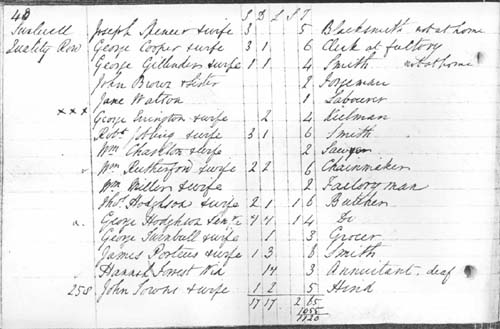 48 S D L S T
Swalwell Joseph Spencer & wife 3 5 Blacksmith not at home
Quality Row George Cooper & wife 3 1 6 Clerk at factory
George Gillender & wife 1 1 4 Smith not at home
John Brown & Sister 2 Foreman
Jane Walton 1 Labourer
x x x George Errington & wife 2 4 Keelman
Robt Jobling & wife 3 1 6 Smith
Wm Charlton & wife 2 Sawyer
Wm Rutherford & wife 2 2 6 Chainmaker
Wm Miller & wife 2 Factory man
Thos Hodgson & wife 2 1 1 6 Butcher
George Hodgson 1 4 Do
George Turnbull & wife 1 3 Grocer
James Porteus & wife 1 3 6 Smith
Hannah Wid 3 Annuitant - deaf
258 John & wife 1 2 5 Hind
17 17 2 65
1055
1120